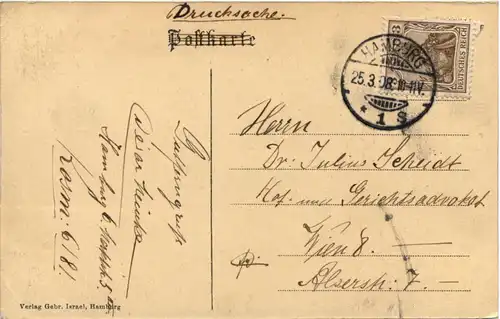 Drucksache.
Postkarte
HAMBURG
25.3.08. 10-11V.
* 1 S
DEUTSCHES REICH
Herrn
Dr. Julius Scheidt
Hof- und Gerichtsadvokat
Wien 8.
Alserstr. 7.
Hamburg 6
6/81
Verlag Gebr. Israel, Hamburg